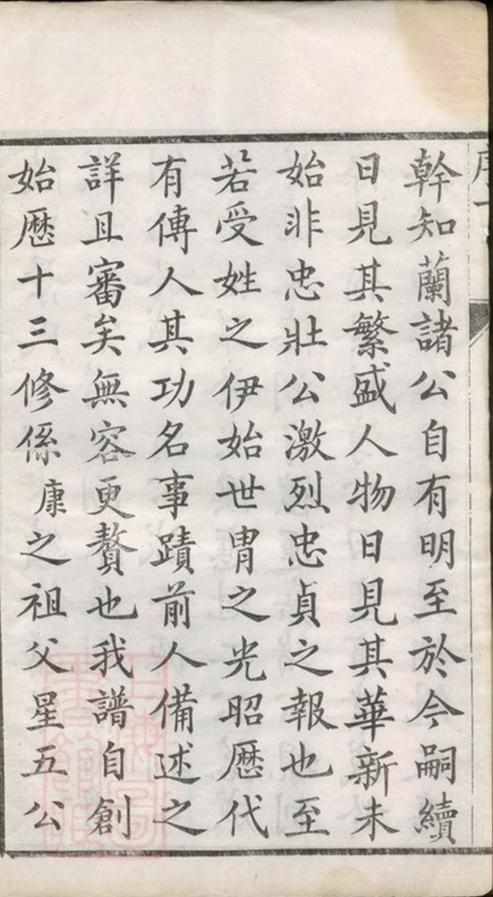 幹知蘭諸公自有明至於今嗣續
日見其繁盛人物日見其華新未
始非忠壯公激烈忠貞之報也至
若受姓之伊始世胄之光昭歷代
有傳人其功名事蹟前人備述之
詳且審矣無容更贅也我譜自創
始歷十三修係康之祖父星五公